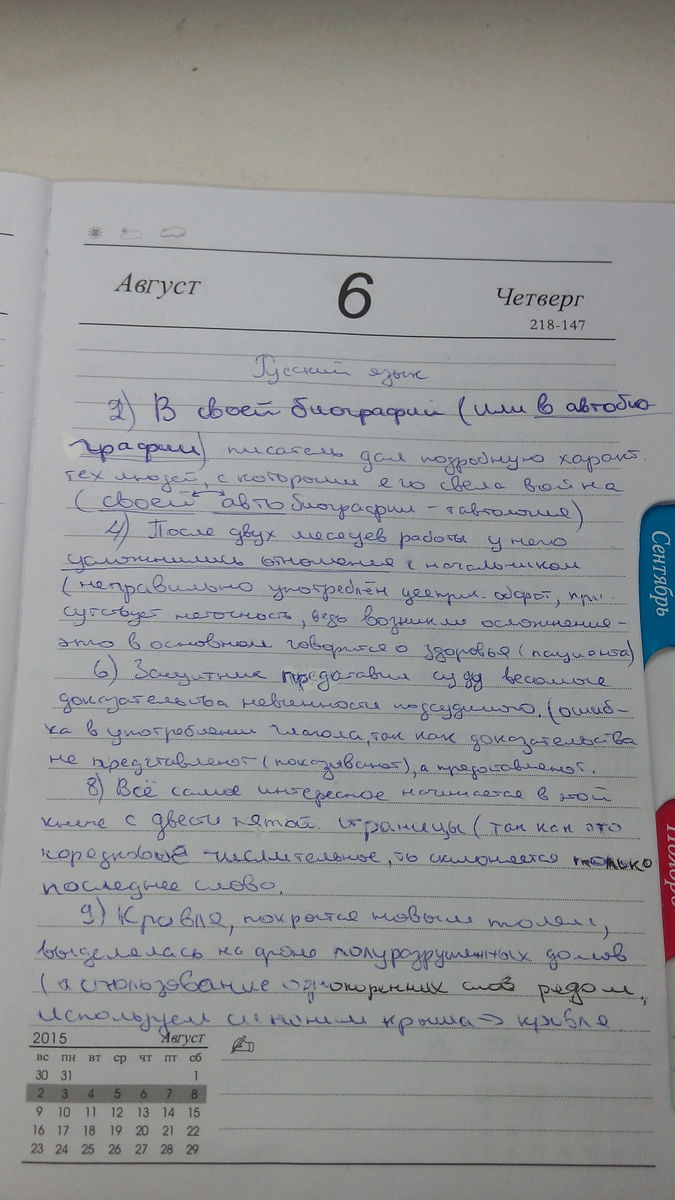 Август 6 Четверг
218-147
Русский язык
2) В своей биографии (или в автобио-
графии) писатель дал подробную характ.
тех людей, с которыми его свела война
(своей автобиографии - тавтология)
4) После двух месяцев работы у него
усложнились отношения с начальником
(неправильно употреблён дееприч. оборот, при-
сутствует неточность, ведь возникли осложнения -
это в основном говорится о здоровье (пациента)
6) Защитник предоставил суду весомые
доказательства невинности подсудимого. (ошиб-
ка в употреблении глагола, так как доказательства
не представляют (показывают), а предоставляют.
8) Всё самое интересное начинается в этой
книге с двести пятой страницы (так как это
порядковые числительное, то склоняется только
последнее слово.
9) Кровля, покрытая новым толем,
выделялась на фоне полуразрушенных домов
(использование однокоренных слов рядом,
используем синоним крыша → кровля.
2015 Август
вс пн вт ср чт пт сб
30 31 1
2 3 4 5 6 7 8
9 10 11 12 13 14 15
16 17 18 19 20 21 22
23 24 25 26 27 28 29
Сентябрь